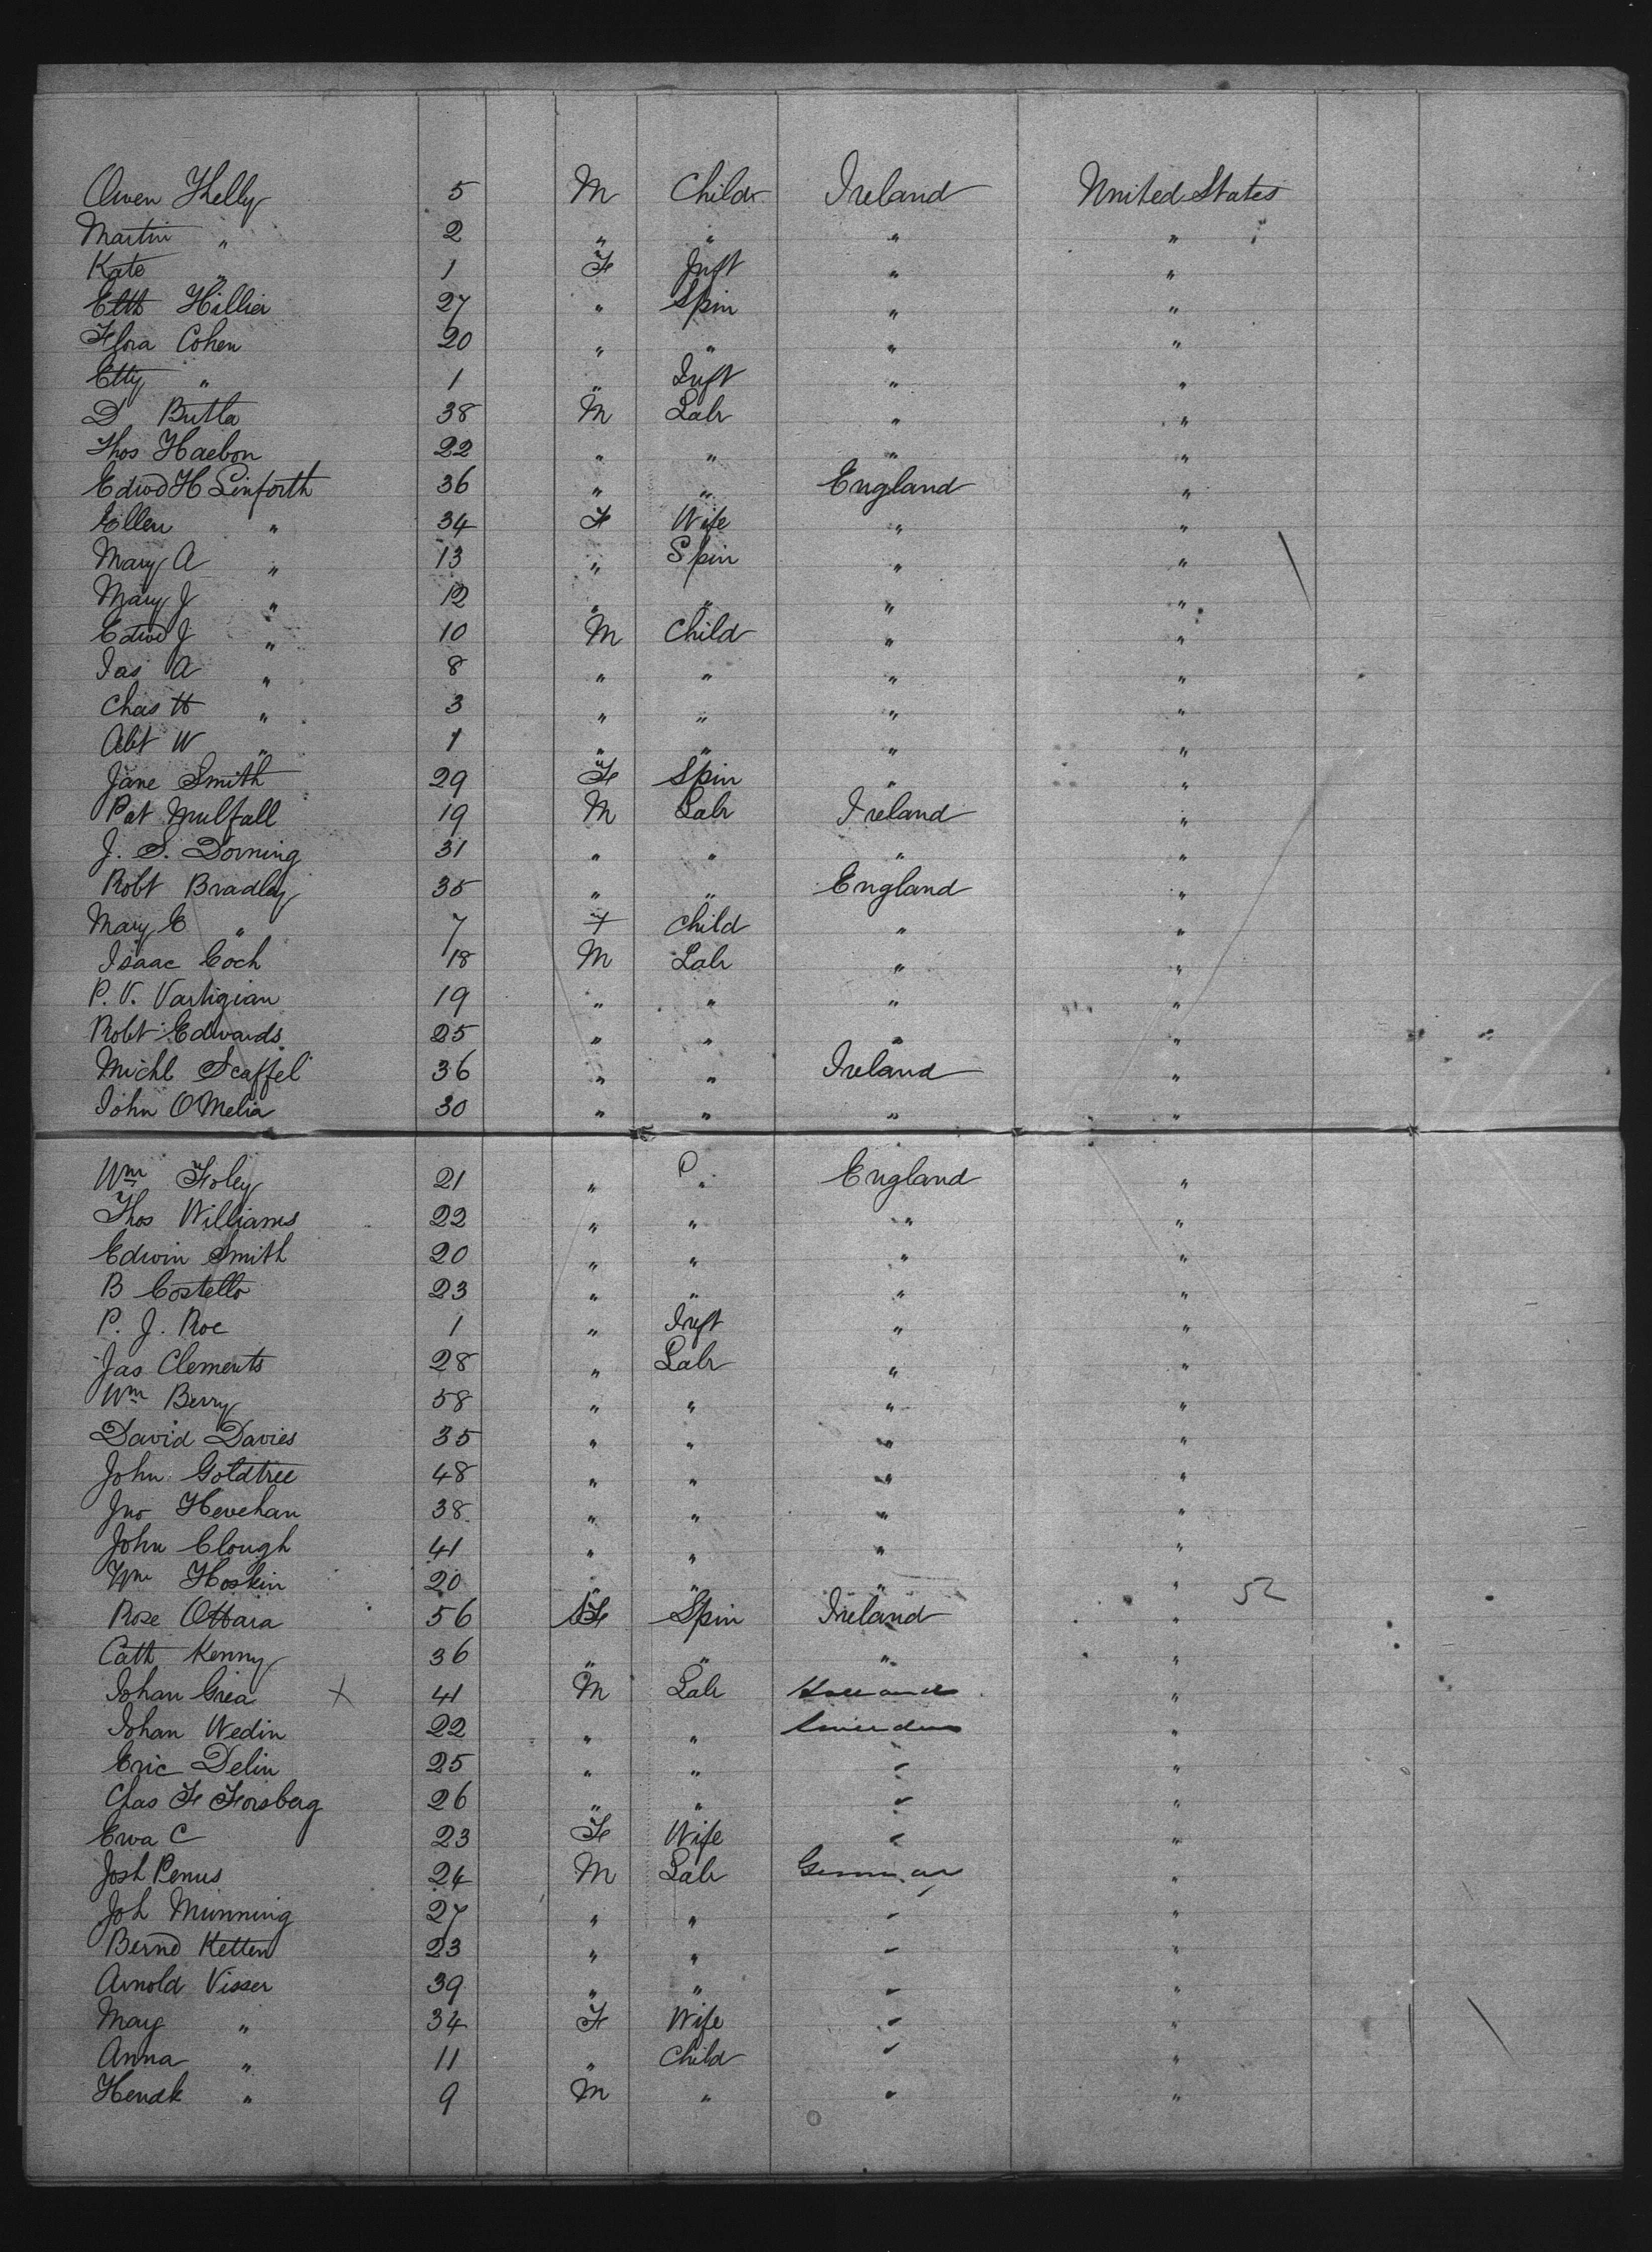 Owen Kelly 5 M Child Ireland United States
Martin " 2 " " " "
Kate " 1 F Inft " "
Elth Hillier 27 " Spin " "
Flora Cohen 20 " " " "
Etty " 1 " Inft " "
D Butler 38 M Labr " "
Thos Haebon 22 " " " "
Edwd H Linforth 36 " " England "
Ellen " 34 F Wife " "
Mary A " 13 " Spin " "
Mary J " 12 " " " "
Edwd J " 10 M Child " "
Jas A " 8 " " " "
Chas H " 3 " " " "
Abt W " 1 " " " "
Jane Smith 29 F Spin " "
Pat Mulfall 19 M Labr Ireland "
J. S. Dorning 31 " " " "
Robt Bradley 35 " " England "
Mary E " 7 F Child " "
Isaac Coch 18 M Labr " "
P. V. Vartigian 19 " " " "
Robt Edwards 25 " " " "
Michl Scaffel 36 " " Ireland "
John OMelia 30 " " " "
Wm Foley 21 " " England "
Thos Williams 22 " " " "
Edwin Smith 20 " " " "
B Costello 23 " " " "
P. J. Roe 1 " Inft " "
Jas Clements 28 " Labr " "
Wm Berry 58 " " " "
David Davies 35 " " " "
John Goldtree 48 " " " "
Jno Hevehan 38 " " " "
John Clough 41 " " " "
Wm Hoskin 20 " " " " 52
Rose OHara 56 F Spin Ireland "
Cath Kenny 36 " " " "
Johan Grea X 41 M Labr "
Johan Wedin 22 " " "
Eric Delin 25 " " " "
Chas F Forsberg 26 " " " "
Ewa C 23 F Wife " "
Josh Penus 24 M Labr "
Joh Munning 27 " " " "
Bernd Ketten 23 " " " "
Arnold Visser 39 " " " "
Mary " 34 F Wife " "
Anna " 11 " Child " "
Hendk " 9 M " " "